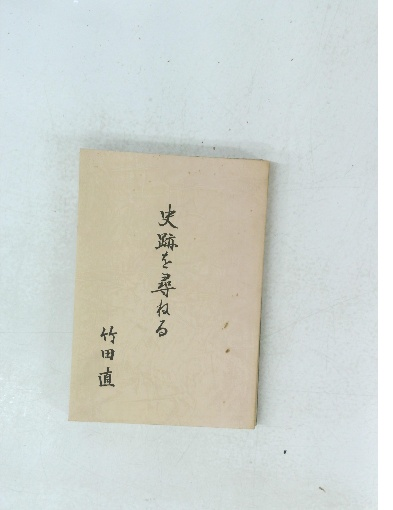 史跡を尋ねる
竹田直